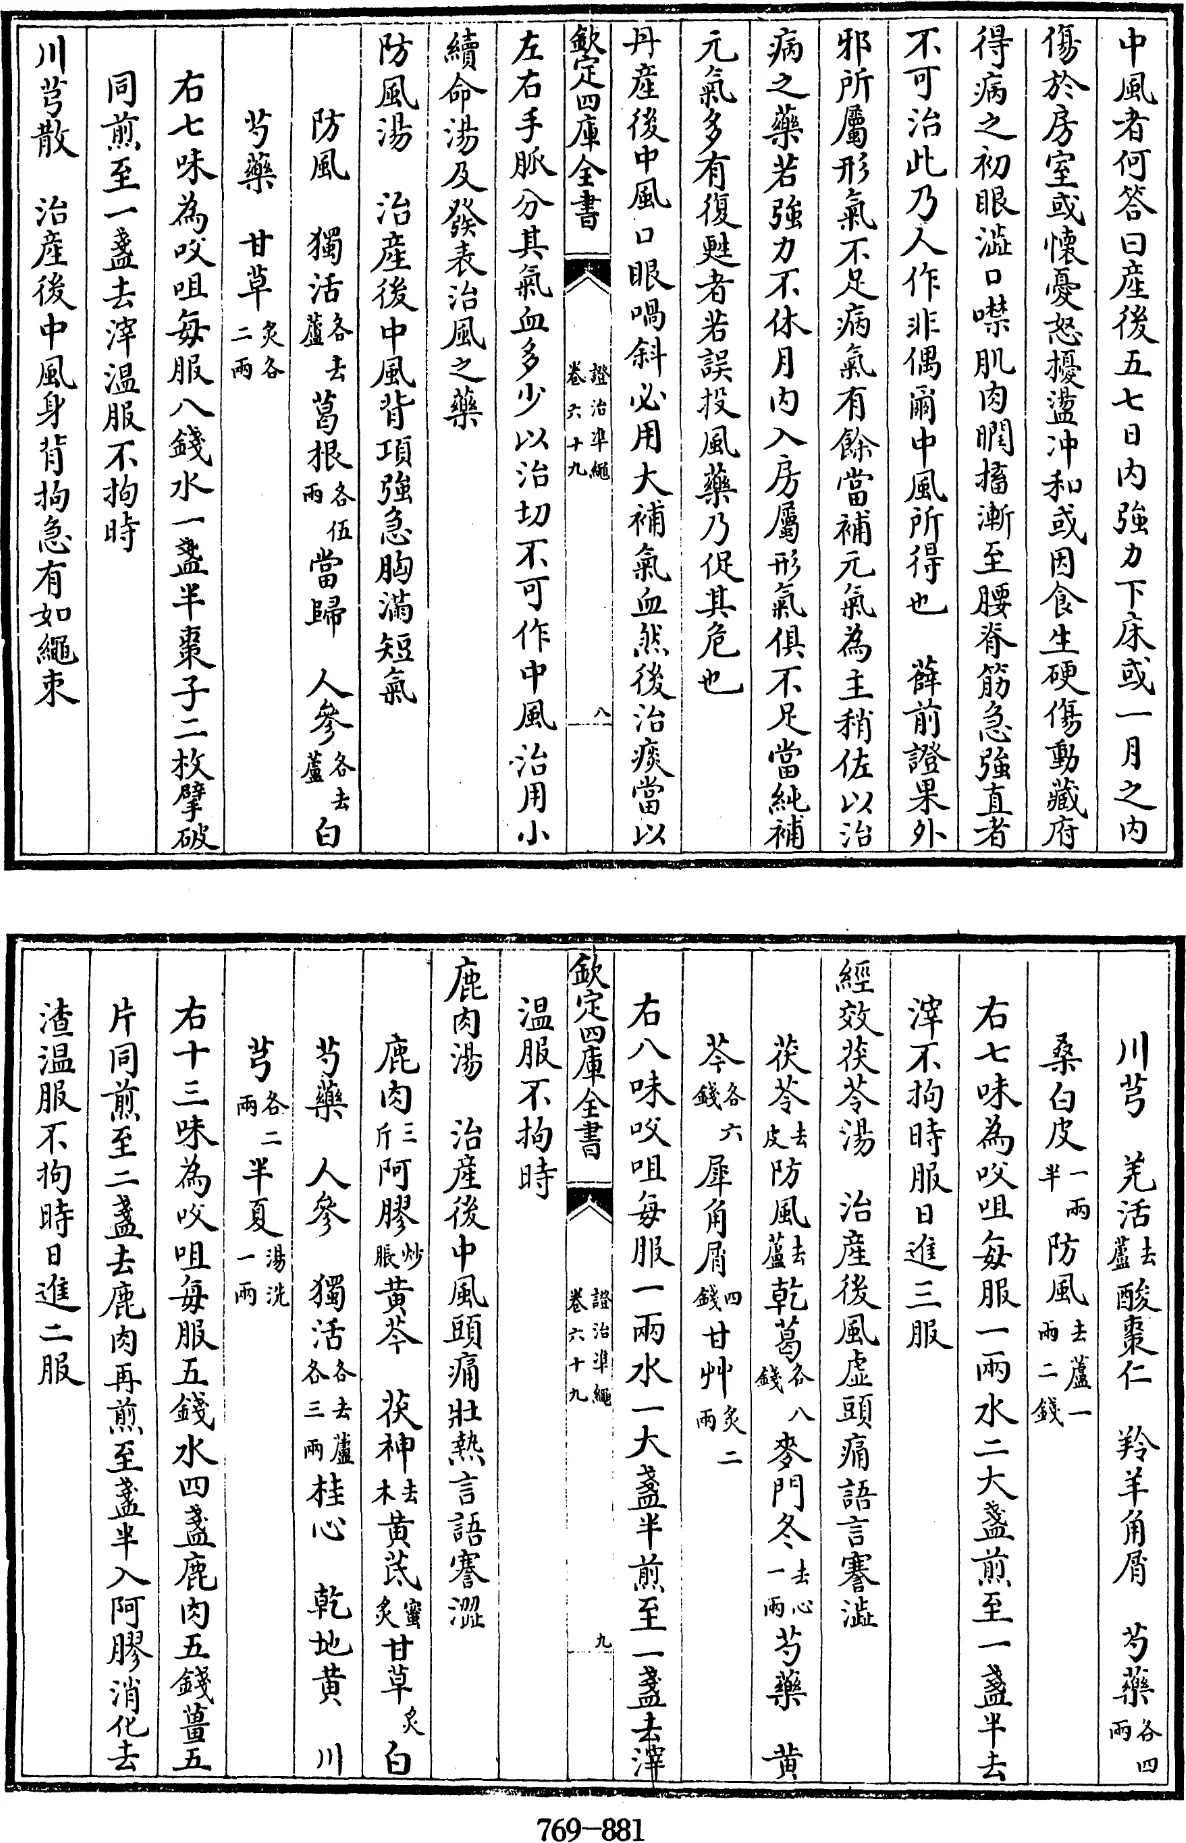 中風者何答曰產後五七日内強力下床或一月之内
傷於房室或懷憂怒擾盪冲和或因食生硬傷動藏府
得病之初眼澁口噤肌肉瞤搐漸至腰脊筋急強直者
不可治此乃人作非偶爾中風所得也　薛前證果外
邪所屬形氣不足病氣有餘當補元氣為主稍佐以治
病之藥若強力不休月内入房屬形氣俱不足當純補
元氣多有復甦者若誤投風藥乃促其危也
丹產後中風口眼喎斜必用大補氣血然後治痰當以
欽定四庫全書　證治凖繩　卷六十九　八
左右手脈分其氣血多少以治切不可作中風治用小
續命湯及發表治風之藥
防風湯　治產後中風背項強急胸滿短氣
防風　獨活各去蘆葛根各伍兩當歸　人參各去蘆白
芍藥　甘草炙各二兩
右七味為㕮咀每服八錢水一盞半棗子二枚擘破
同煎至一盞去滓温服不拘時
川芎散　治產後中風身背拘急有如繩束
川芎　羌活去蘆酸棗仁　羚羊角屑　芍藥各四兩
桑白皮一兩半防風去蘆一兩二錢
右七味為㕮咀每服一兩水二大盞煎至一盞半去
滓不拘時服日進三服
經效茯苓湯　治產後風虚頭痛語言謇澁
茯苓去皮防風去蘆乾葛各八錢麥門冬去心一兩芍藥　黄
芩各六錢犀角屑四錢甘艸炙二兩
右八味㕮咀每服一兩水一大盞半煎至一盞去滓
欽定四庫全書　證治凖繩　卷六十九　九
温服不拘時
鹿肉湯　治產後中風頭痛壯熱言語謇澀
鹿肉三斤阿膠炒脹黄芩　茯神去木黄芪蜜炙甘草炙白
芍藥　人參　獨活各去蘆各三兩桂心　乾地黄　川
芎各二兩半夏湯洗一兩
右十三味為㕮咀每服五錢水四盞鹿肉五錢薑五
片同煎至二盞去鹿肉再煎至盞半入阿膠消化去
渣温服不拘時日進二服
769—881